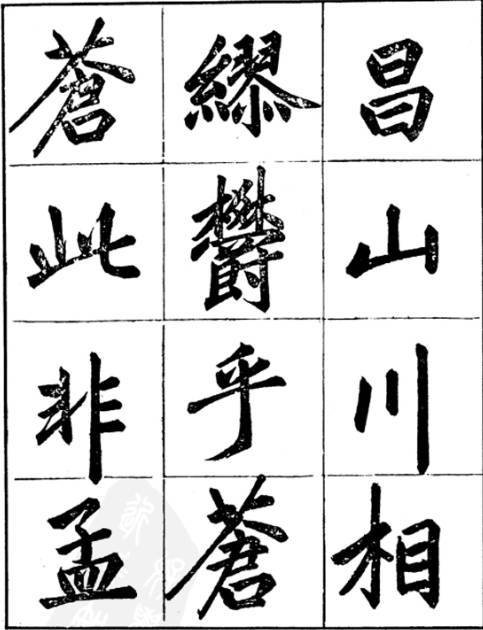 昌山川相
繆欝乎蒼
蒼此非孟